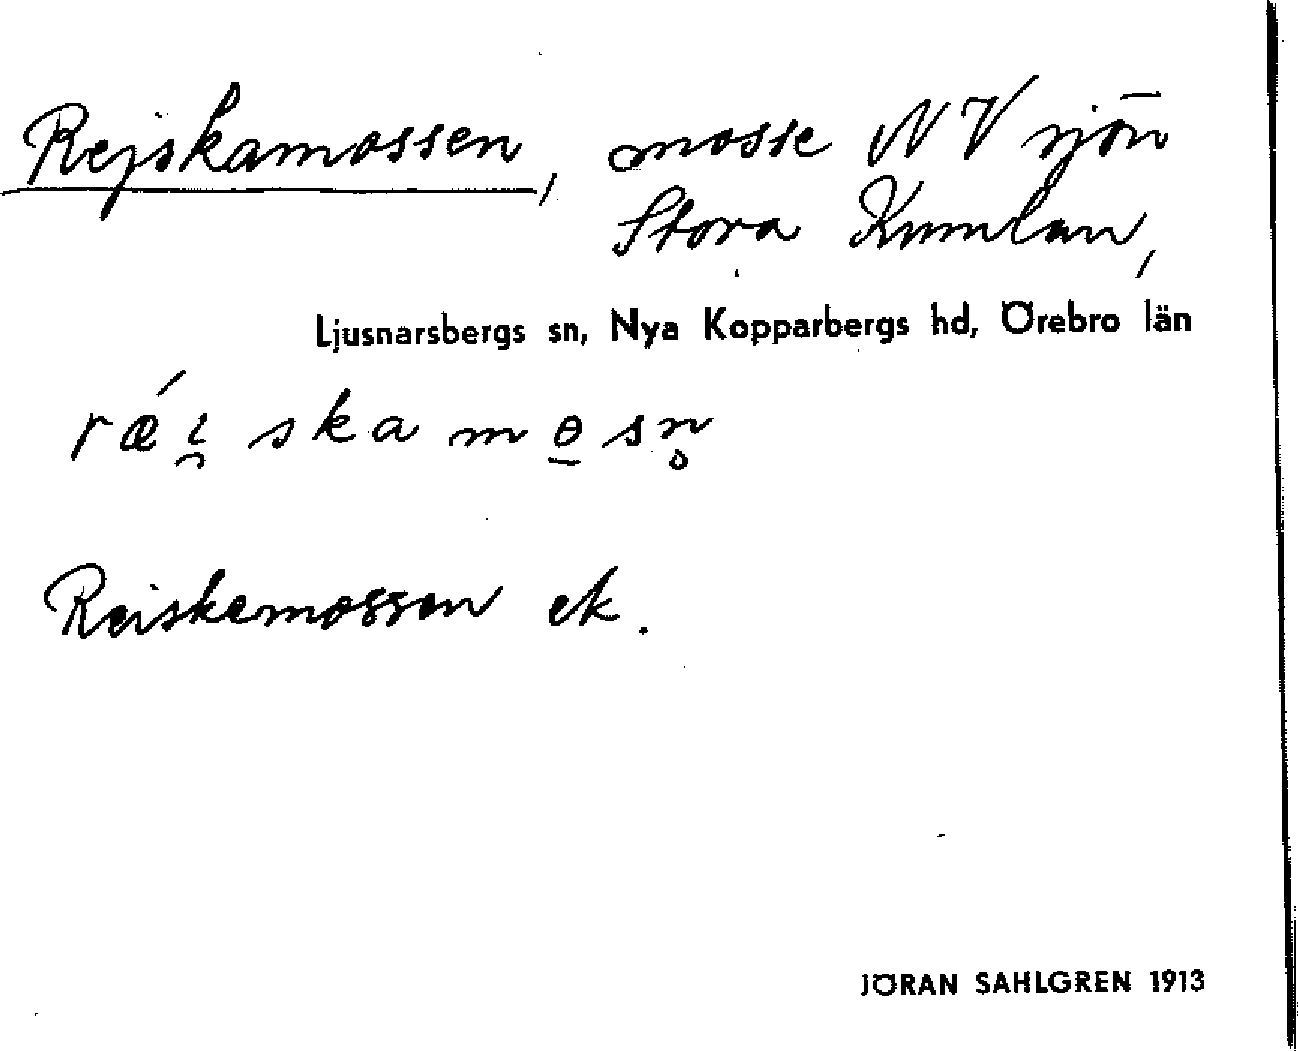 Rejskamossen, mosse NV sjön
Stora Kumlan,
Ljusnarsbergs sn, Nya Kopparbergs hd, Örebro län
rǽi̯skamɵ̠sn̥
Reiskemossen ek.
JÖRAN SAHLGREN 1913